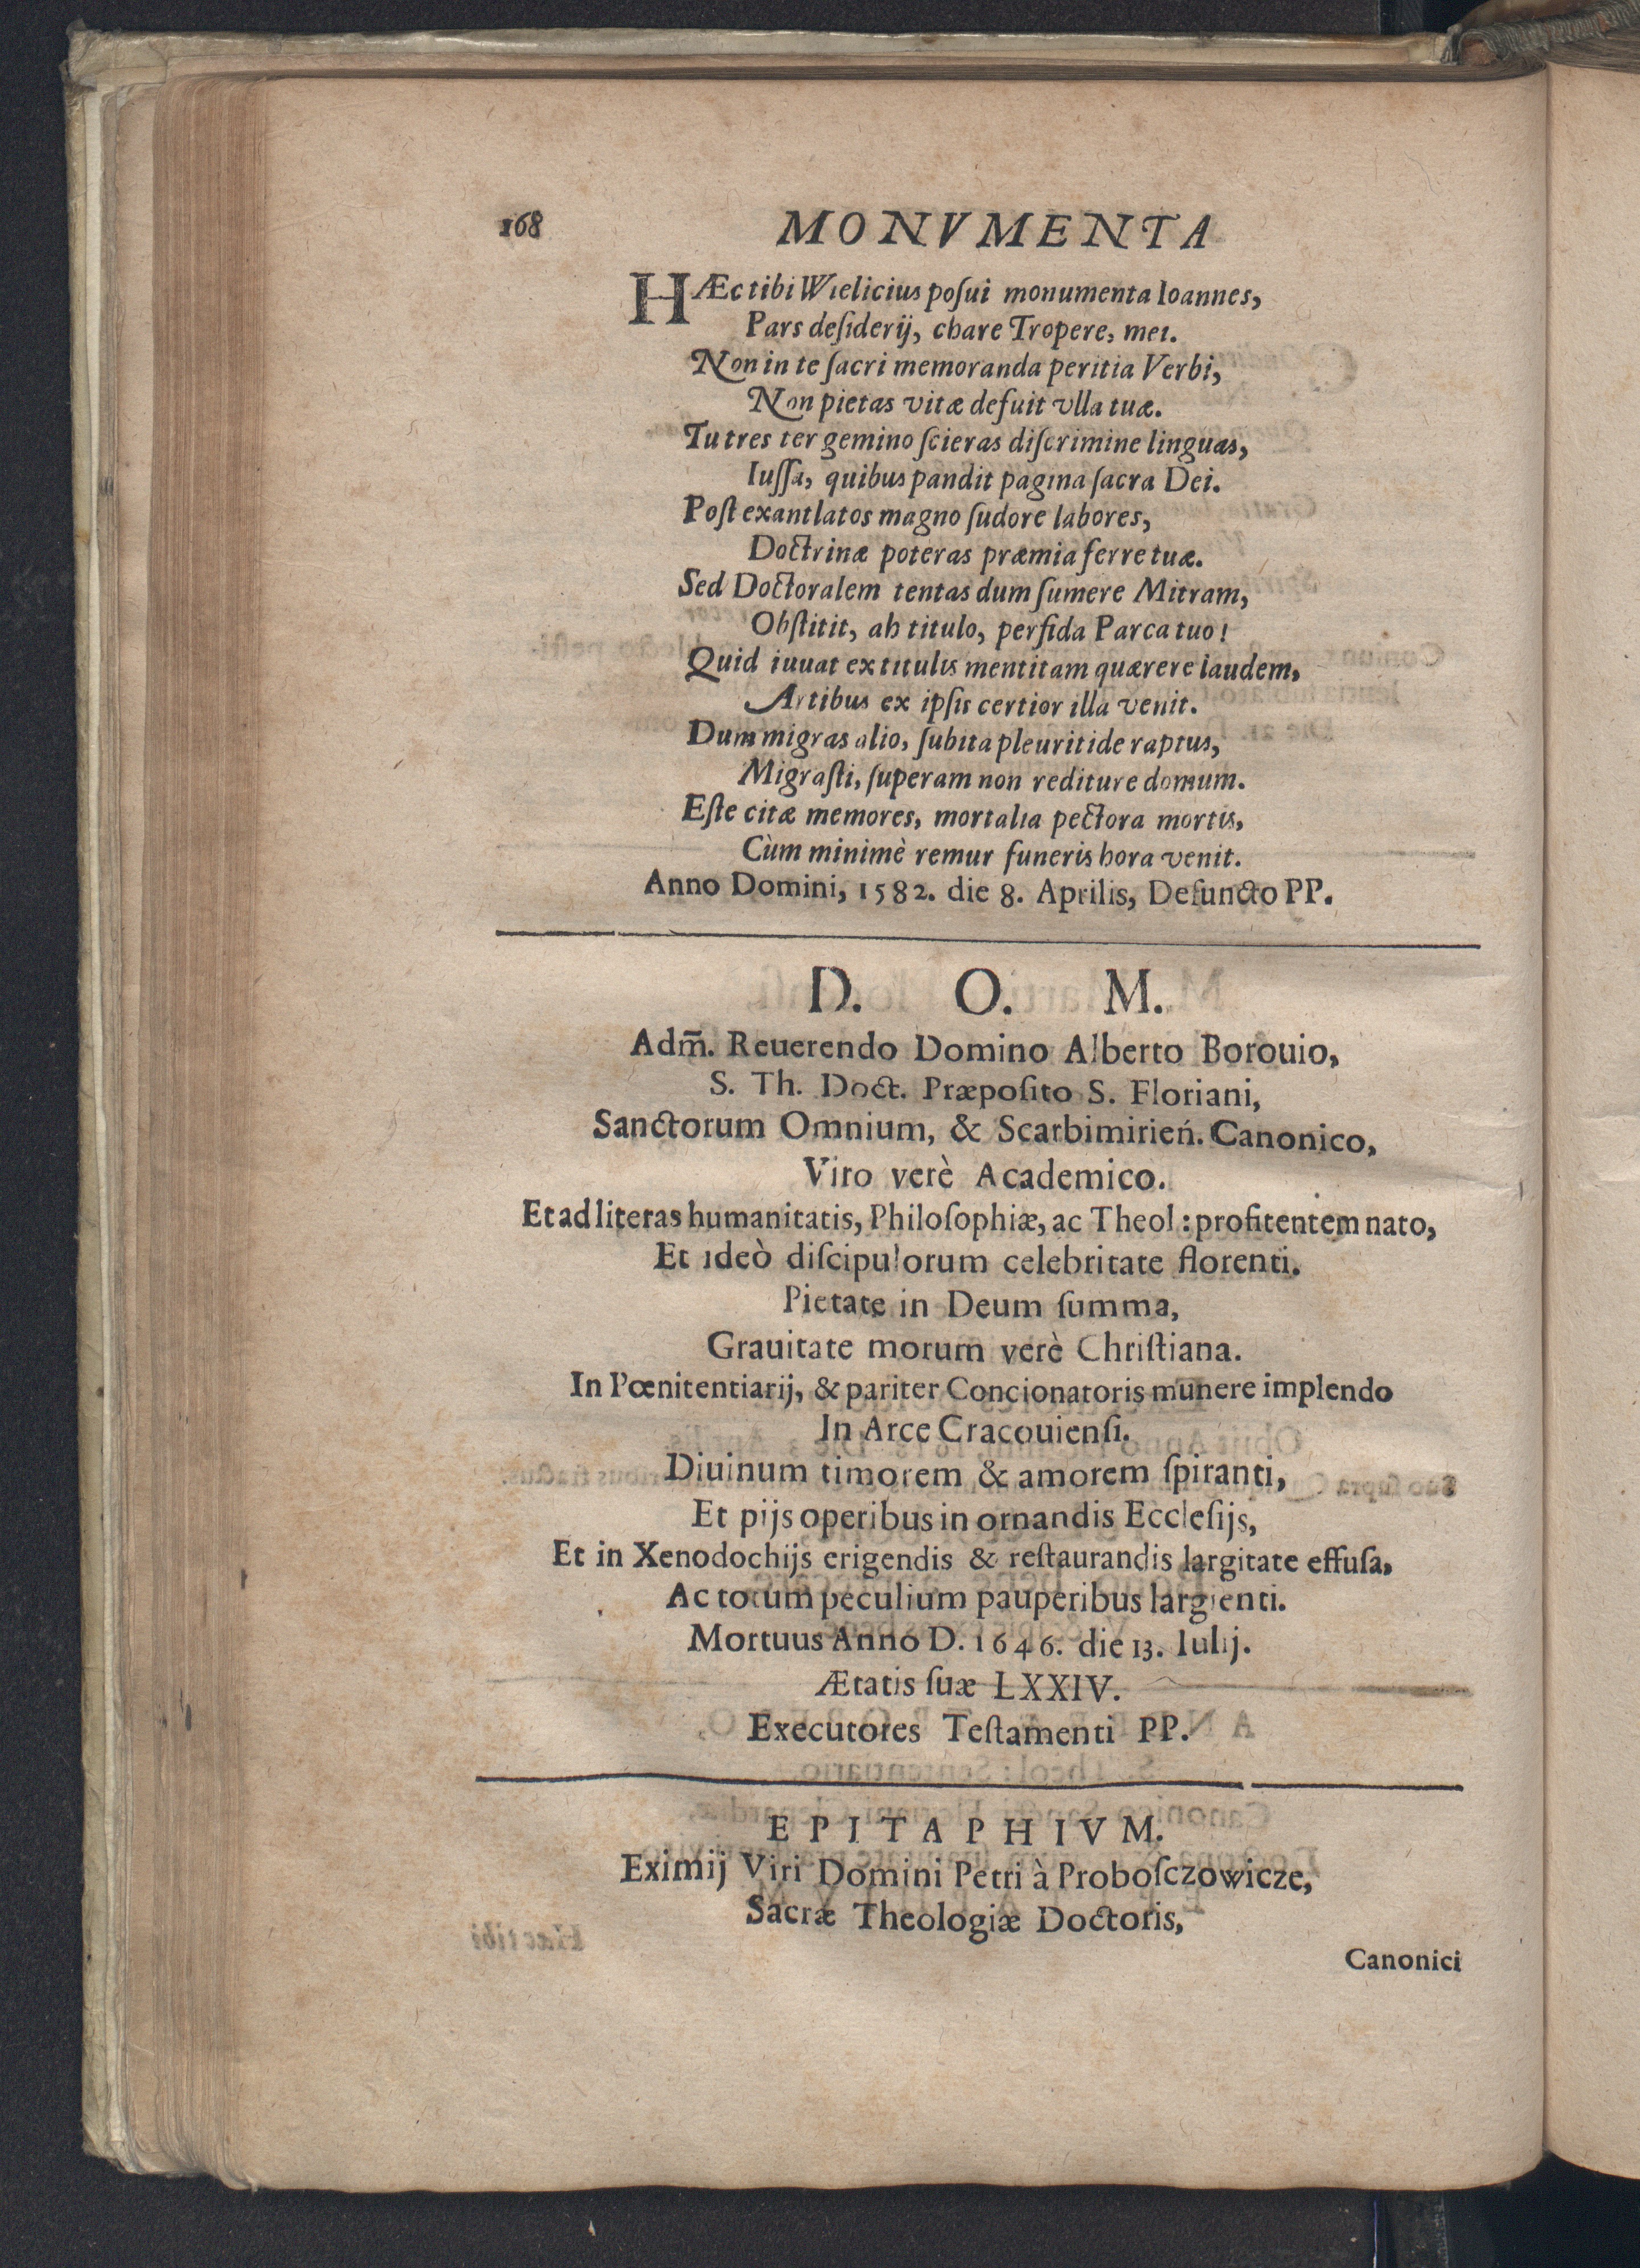 168 MONVMENTA
HÆc tibi Wielicius poſui monumenta Ioannes,
Pars deſiderij, chare Tropere, mei.
Non in te ſacri memoranda peritia Verbi,
Non pietas vitæ defuit vlla tuæ.
Tu tres ter gemino ſcieras diſcrimine linguas,
Iuſſa, quibus pandit pagina ſacra Dei.
Poſt exantlatos magno ſudore labores,
Doctrinæ poteras præmia ferre tuæ.
Sed Doctoralem tentas dum ſumere Mitram,
Obſtitit, ah titulo, perfida Parca tuo!
Quid iuuat ex titulis mentitam quærere laudem,
Artibus ex ipſis certior illa venit.
Dum migras alio, ſubita pleuritide raptus,
Migraſti, ſuperam non rediture domum.
Eſte citæ memores, mortalia pectora mortis,
Cùm minimè remur funeris hora venit.
Anno Domini, 1582. die 8. Aprilis, Defuncto PP.
D. O. M.
Adm̃. Reuerendo Domino Alberto Borouio,
S. Th. Doct. Præpoſito S. Floriani,
Sanctorum Omnium, & Scarbimirień. Canonico,
Viro verè Academico.
Et ad literas humanitatis, Philoſophiæ, ac Theol: profitentem nato,
Et ideò diſcipulorum celebritate florenti.
Pietate in Deum ſumma,
Grauitate morum verè Chriſtiana.
In Pœnitentiarij, & pariter Concionatoris munere implendo
In Arce Cracouienſi.
Diuinum timorem & amorem ſpiranti,
Et pijs operibus in ornandis Eccleſijs,
Et in Xenodochijs erigendis & reſtaurandis largitate effuſa,
Ac totum peculium pauperibus largienti.
Mortuus Anno D. 1646. die 13. Iulij.
Ætatis ſuæ LXXIV.
Executores Teſtamenti PP.
EPITAPHIVM.
Eximij Viri Domini Petri à Proboſczowicze,
Sacræ Theologiæ Doctoris,
Canonici